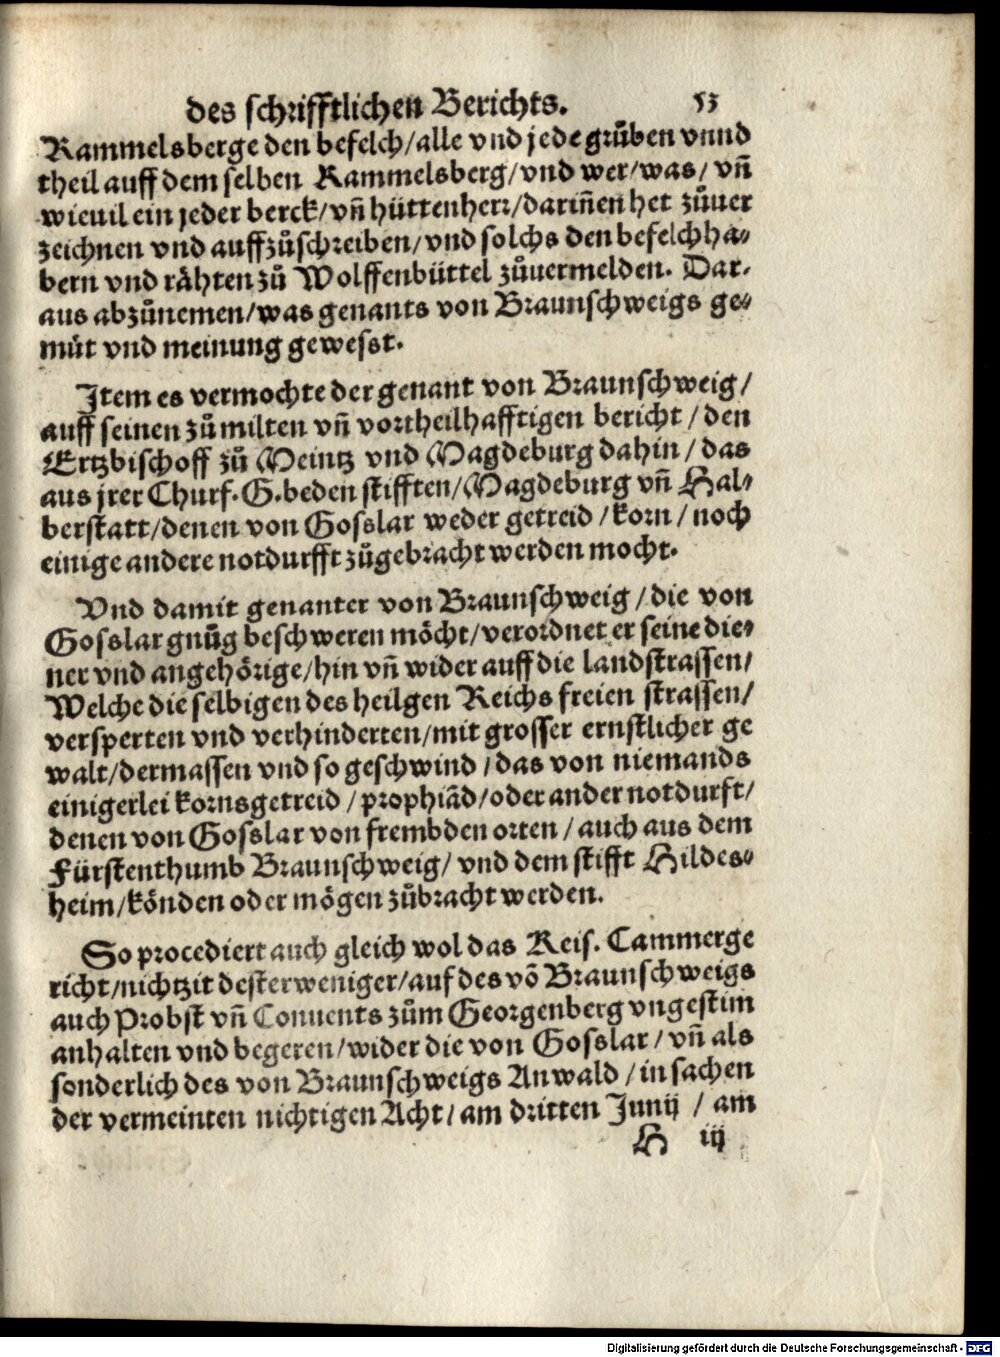 des schrifftlichen Berichts. 53
Rammelsberge den befelch/alle vnd jede grůben vnnd
theil auff dem selben Rammelsberg/vnd wer/was/vñ
wieuil ein jeder berck/vñ hüttenherr/dariñen het zůuer
zeichnen vnd auffzůschreiben/vnd solchs den befelchha⸗
bern vnd rähten zů Wolffenbüttel zůuermelden. Dar⸗
aus abzůnemen/was genants von Braunschweigs ge⸗
müt vnd meinung gewesst.
Item es vermochte der genant von Braunschweig/
auff seinen zů milten vñ vortheilhafftigen bericht/den
Ertzbischoff zů Meintz vnd Magdeburg dahin/das
aus jrer Churf. G. beden stifften/Magdeburg vñ Hal⸗
berstatt/denen von Gosslar weder getreid/korn/noch
einige andere notdurfft zůgebracht werden mocht.
Vnd damit genanter von Braunschweig/die von
Gosslar gnůg beschweren möcht/verordnet er seine die⸗
ner vnd angehörige/hin vñ wider auff die landstrassen/
Welche die selbigen des heilgen Reichs freien strassen/
versperten vnd verhinderten/mit grosser ernstlicher ge
walt/dermassen vnd so geschwind/das von niemands
einigerlei kornsgetreid/prophiãd/oder ander notdurft/
denen von Gosslar von frembden orten/auch aus dem
Fürstenthumb Braunschweig/vnd dem stifft Hildes⸗
heim/könden oder mögen zůbracht werden.
So procediert auch gleich wol das Keis. Cammerge
richt/nichtzit desterweniger/auf des võ Braunschweigs
auch Probst vñ Conuents zům Georgenberg vngestim
anhalten vnd begeren/wider die von Gosslar/vñ als
sonderlich des von Braunschweigs Anwald/in sachen
der vermeinten nichtigen Acht/am dritten Junij/am
H iij
Digitalisierung gefördert durch die Deutsche Forschungsgemeinschaft - DFG